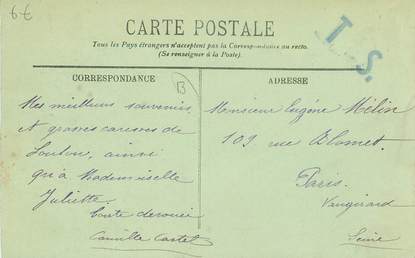 6€
CARTE POSTALE
Tous les Pays étrangers n'acceptent pas la Correspondance au recto.
(Se renseigner à la Poste).
T. S.
CORRESPONDANCE
B
Mes meilleurs souvenirs
et grosses caresses de
Loulou, ainsi
qu'à Mademoiselle
Juliette.
toute dévouée
Camille Castel
ADRESSE
Monsieur Eugène Mélin
109 rue Blomet.
Paris.
Vaugirard
Seine